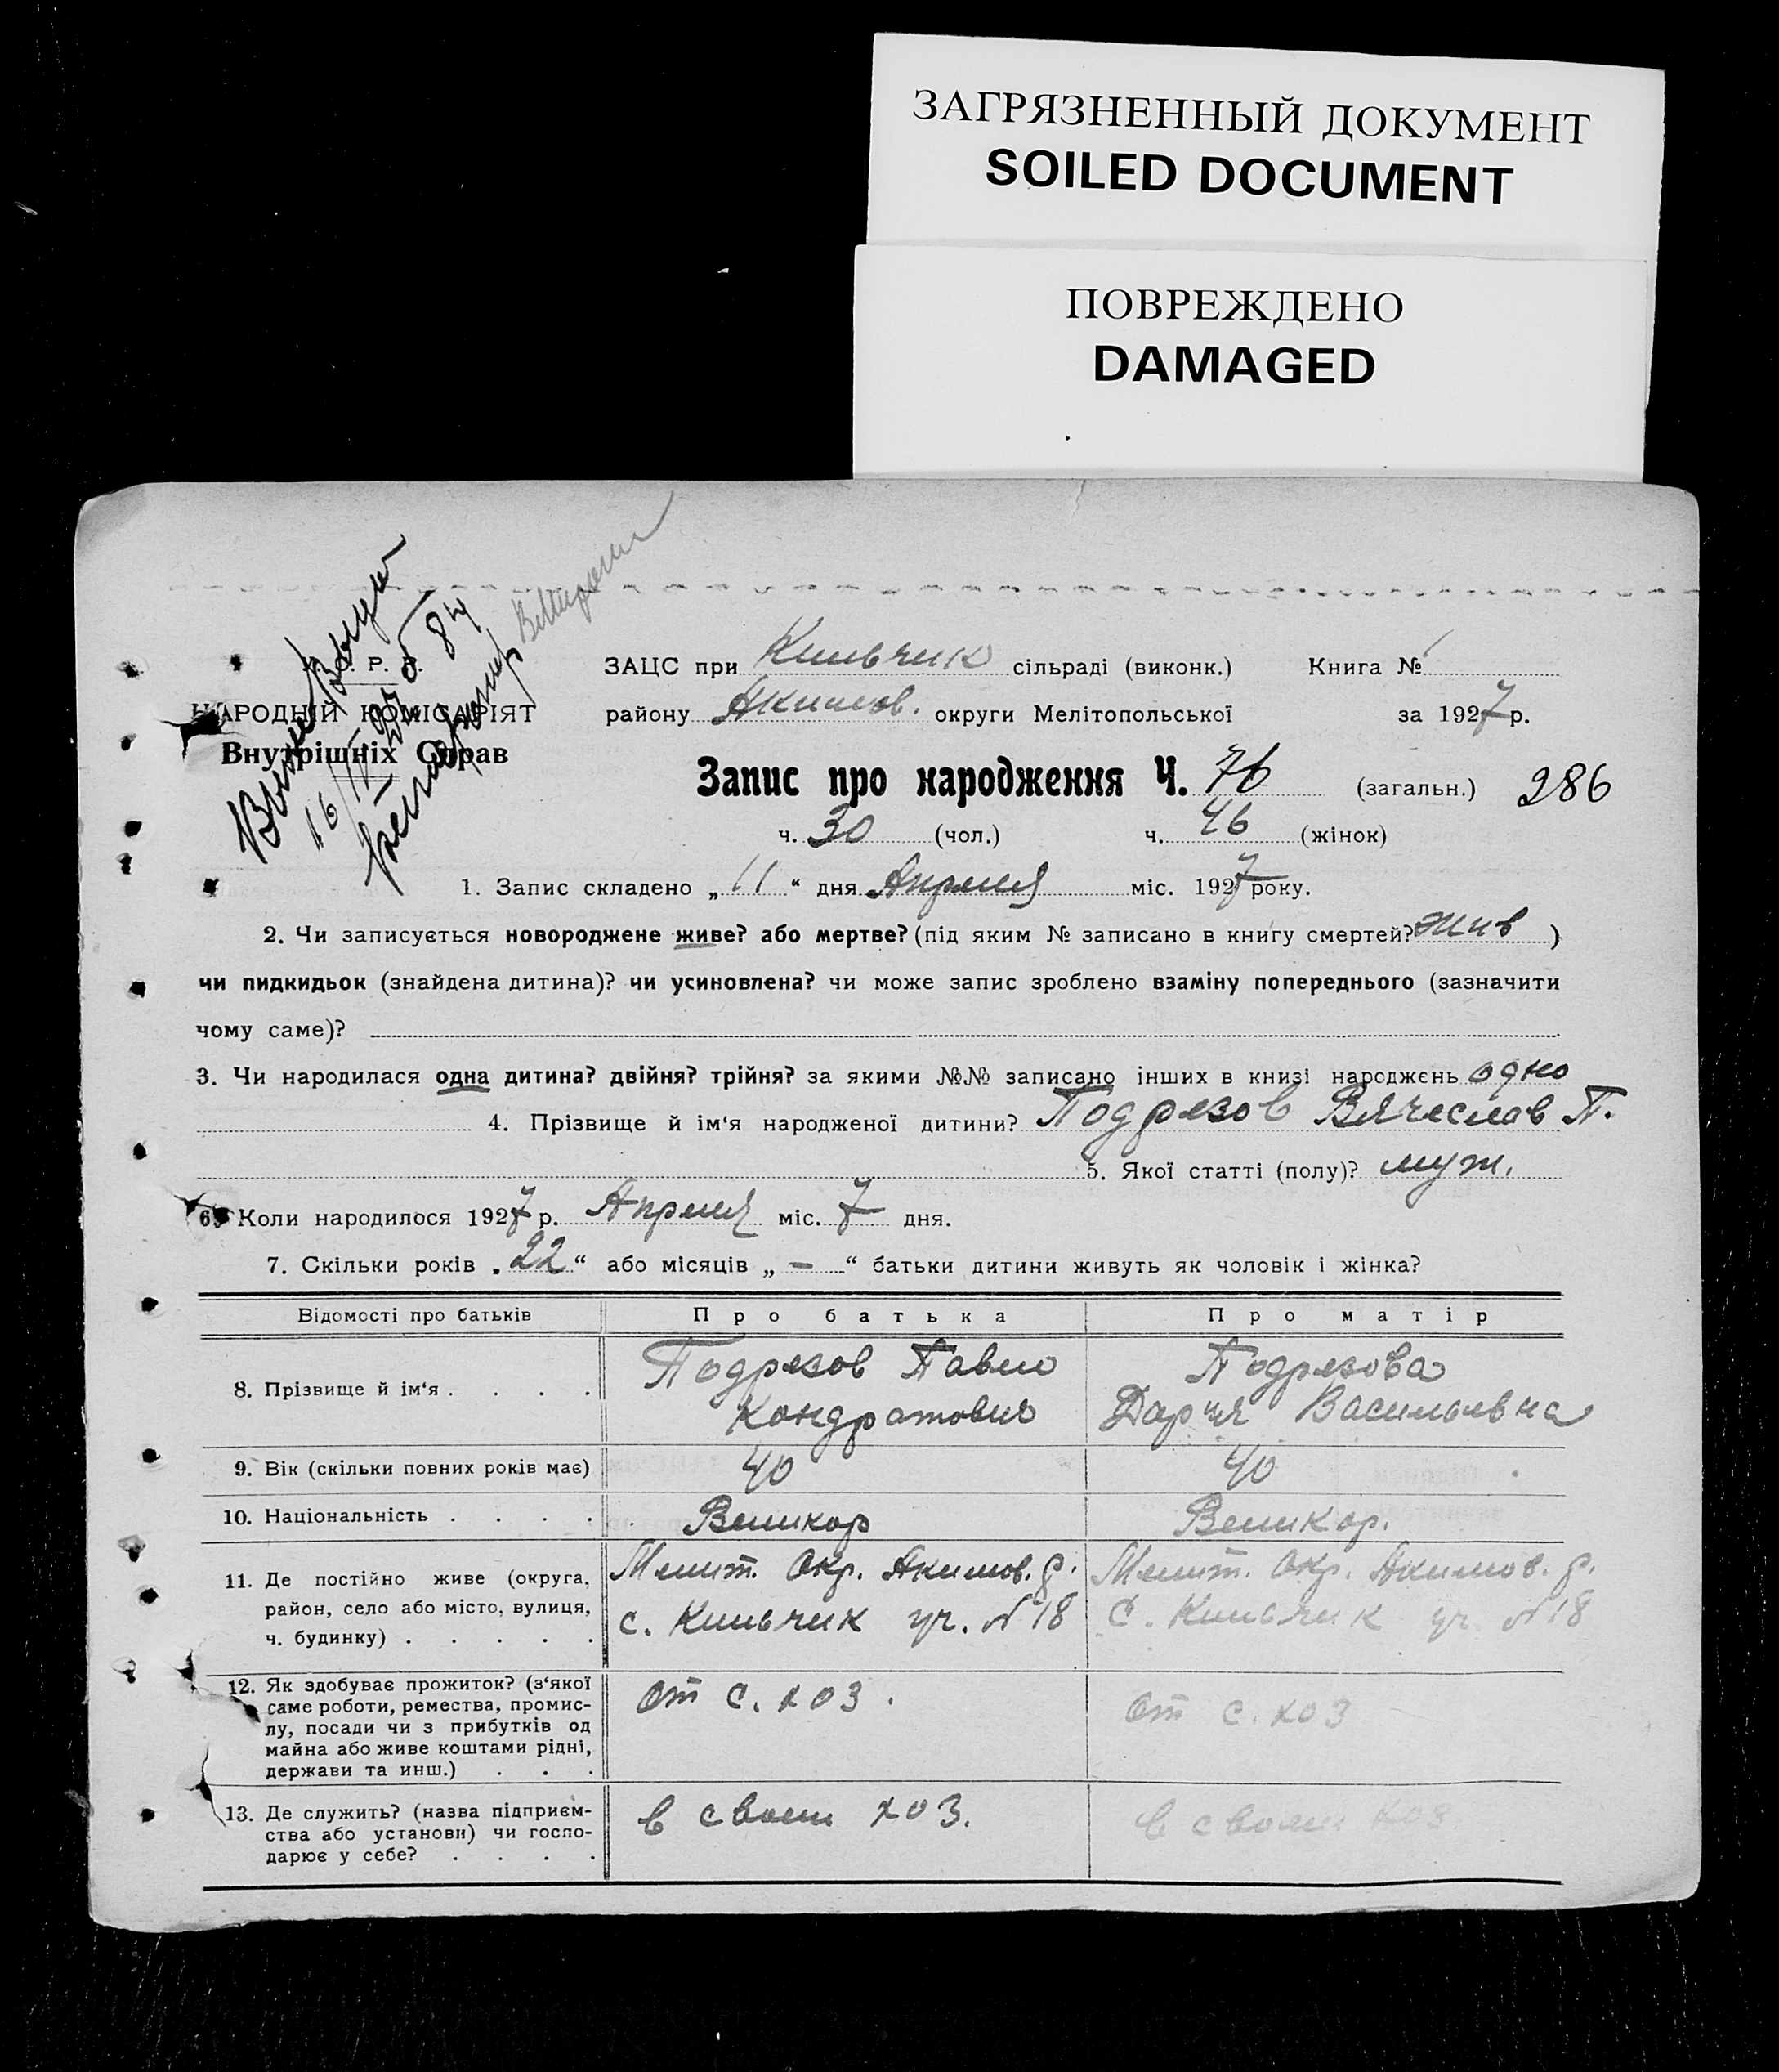 ЗАГРЯЗНЕННЫЙ ДОКУМЕНТ
SOILED DOCUMENT
ПОВРЕЖДЕНО
DAMAGED
ЗАЦС при Кильчик сільраді (виконк.) Книга № 1
НАРОДНІЙ КОМІСАРІЯТ
району Акимов. округи Мелітопольської за 1927 р.
Внутрішніх Справ
Запис про народження Ч. 76 (загальн.) 286
ч. 30 (чол.) ч. 46 (жінок)
1. Запис складено „ 11 “ дня Апреля міс. 1927 року.
2. Чи записується новороджене живе? або мертве? (під яким № записано в книгу смертей? жив )
чи пидкидьок (знайдена дитина)? чи усиновлена? чи може запис зроблено взаміну попереднього (зазначити
чому саме)?
3. Чи народилася одна дитина? двійня? трійня? за якими №№ записано інших в книзі народжень одно
4. Прізвище й ім‘я народженої дитини? Подрезов Вячеслав П.
5. Якої статті (полу)? муж.
6. Коли народилося 1927 р. Апреля міс. 7 дня.
7. Скільки років „ 22 “ або місяців „ — “ батьки дитини живуть як чоловік і жінка?
Відомості про батьків Про батька Про матір
8. Прізвище й ім‘я . . . . Подрезов Павло Кондратович Подрезова Дария Васильевна
9. Вік (скільки повних років має) 40 40
10. Національність . . . . Великор Великор.
11. Де постійно живе (округа, район, село або місто, вулиця, ч. будинку) . . . . . Мелит. Окр. Акимов. р. с. Кильчик уч. №18 Мелит. Окр. Акимов. р. С. Кильчик уч. №18
12. Як здобуває прожиток? (з‘якої саме роботи, ремества, промислу, посади чи з прибутків од майна або живе коштами рідні, держави та инш.) . . . От с. хоз. От с. хоз
13. Де служить? (назва підприємства або установи) чи господарює у себе? . . . . в своем хоз. в своем хоз